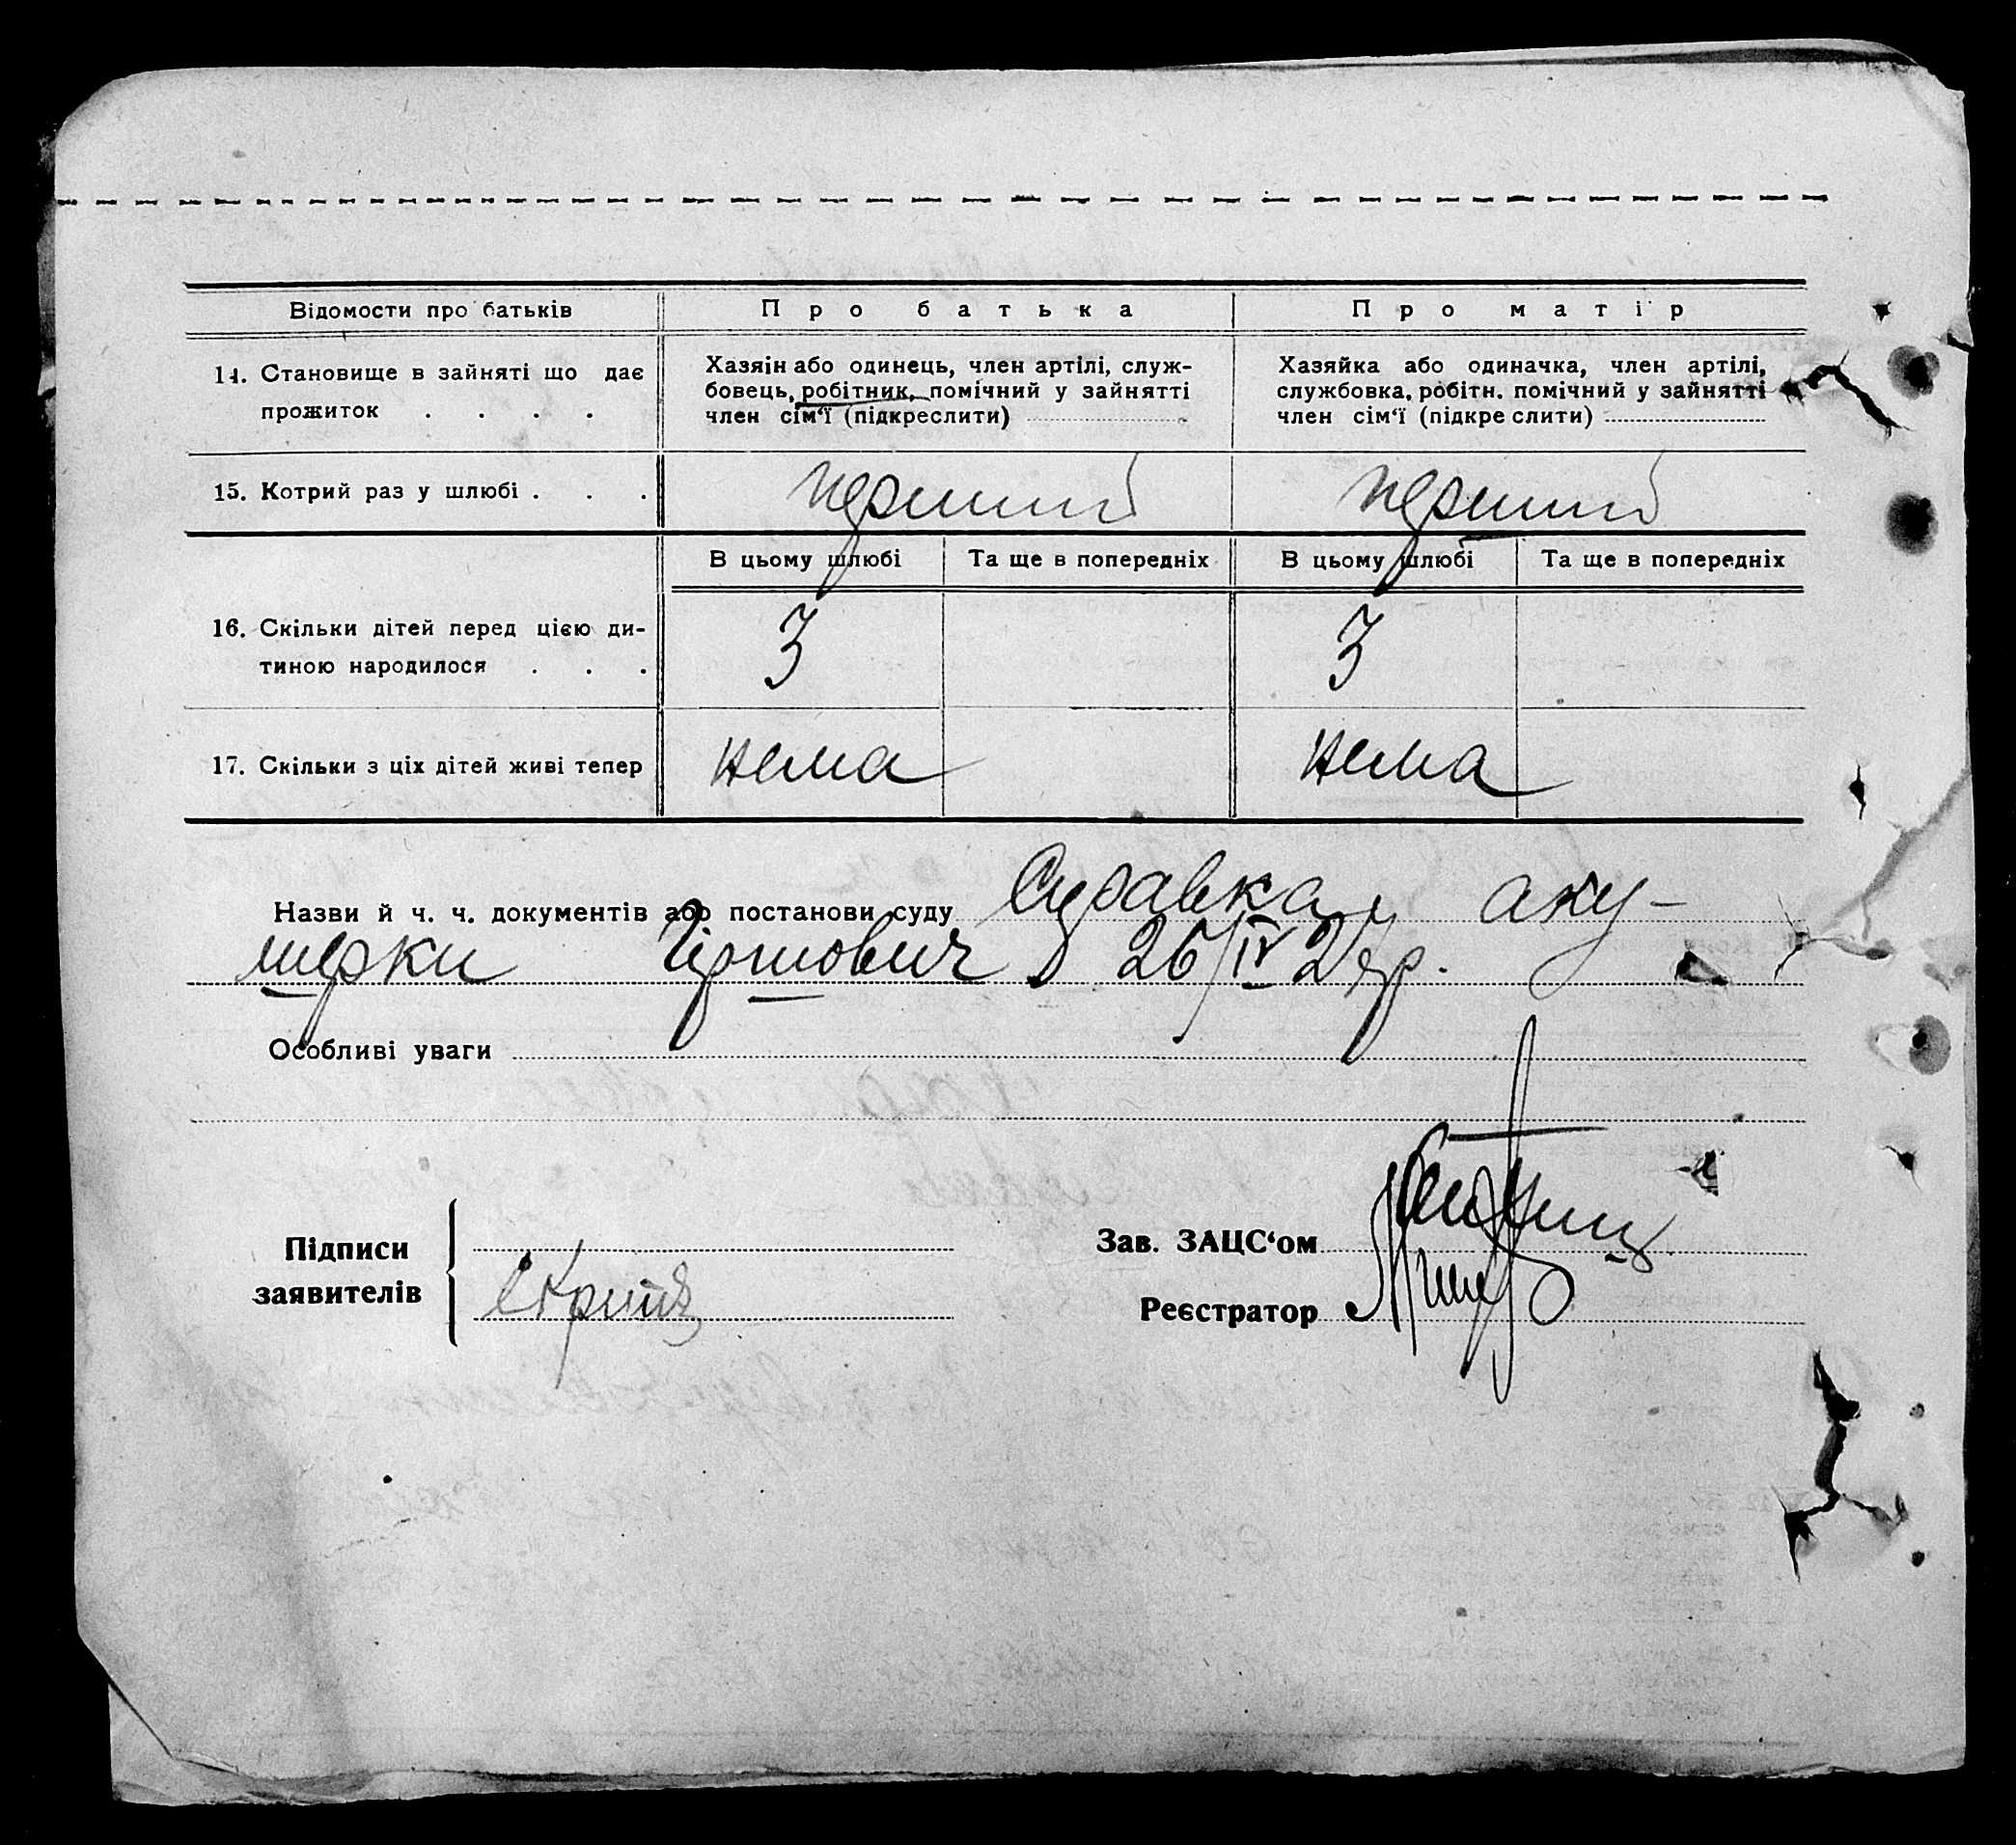 Відомости про батьків
Про батька
Про матір
14. Становище в зайняті що дає
прожиток . . . .
Хазяін або одинець, член артілі, служ-
бовець, робітник, помічний у зайнятті
член сім‘ї (підкреслити)
Хазяйка або одиначка, член артілі,
службовка, робітн. помічний у зайнятті
член сім‘ї (підкреслити)
15. Котрий раз у шлюбі . . .
перший
перший
В цьому шлюбі
Та ще в попередніх
В цьому шлюбі
Та ще в попередніх
16. Скільки дітей перед цією ди-
тиною народилося . . .
3
3
17. Скільки з ціх дітей живі тепер
нема
нема
Назви й ч. ч. документів або постанови суду Справка аку-
шерки 26/IV
Особливі уваги
Підписи
заявителів
Зав. ЗАЦС‘ом
Реєстратор